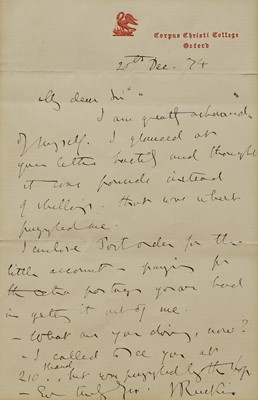 Corpus Christi College
Oxford
20th Dec. 74
My dear Sir
I am greatly ashamed
of myself. I glanced at
your letter hastily and thought
it was pounds instead
of shillings. that was what
puzzled me.
I enclose Post order for the
little account - paying for
the extra postage your hand
in getting it out of me.
- What are you doing, now?
- I called to see you at
210... but was puzzled by the
- Ever truly yrs. J Ruskin